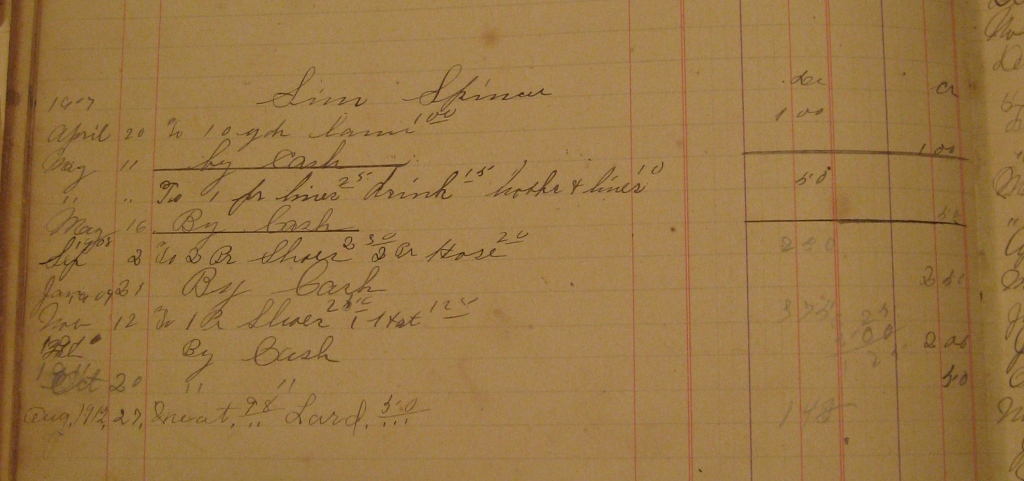 1907 Sim Spincer Dr Cr
April 20 To 10 yds 1 00 1 00
May 11 by Cash 1 00
" " To 1 pr lines 25 drink 15 hooks & lines 10 50
May 16 By Cash 50
1908
Sep 2 To 2 Pr Shoes 2 30 2 Pr Hose 20 2 50
Jan 09 21 By Cash 2 50
Nov 12 To 1 Pr Shoes 2 50 1 Hat 1 25 3 75
By Cash 2 00
1911
Oct 20 " " 50
Aug, 1912, 27, Meat, 98 Lard, 50 1 48